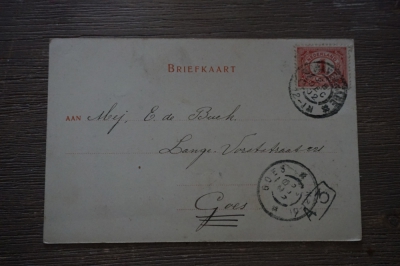 BRIEFKAART
1
AAN Mej. E. de Buck
Lange Vorststraat
Goes
GOES
A 3